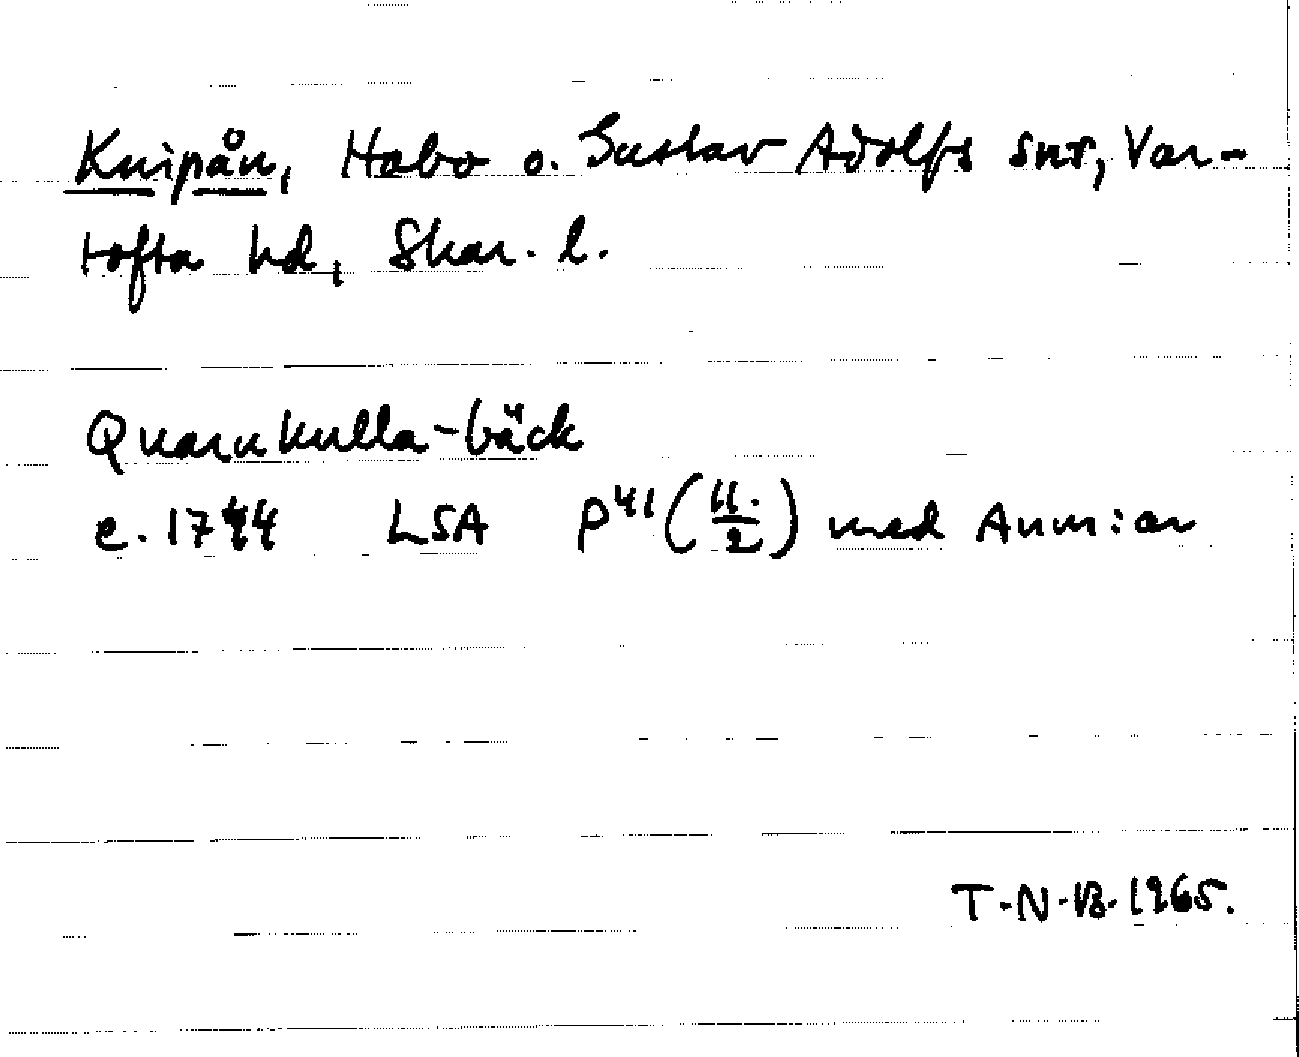 Knipån, Habo o. Gustav Adolfs snr, Var-
tofta hd, Skar. l.
Quarnkulla-bäck
c. 1744 LSA P41 (11./2) med Anm:ar
T.N.B. 1965.